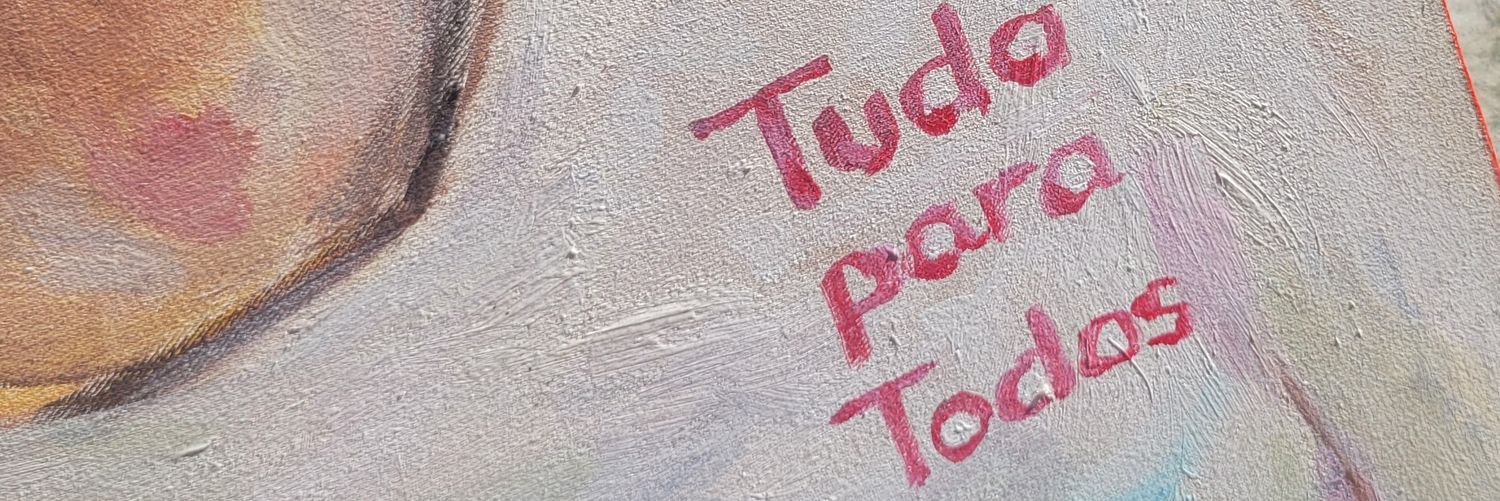 Tudo
para
Todos